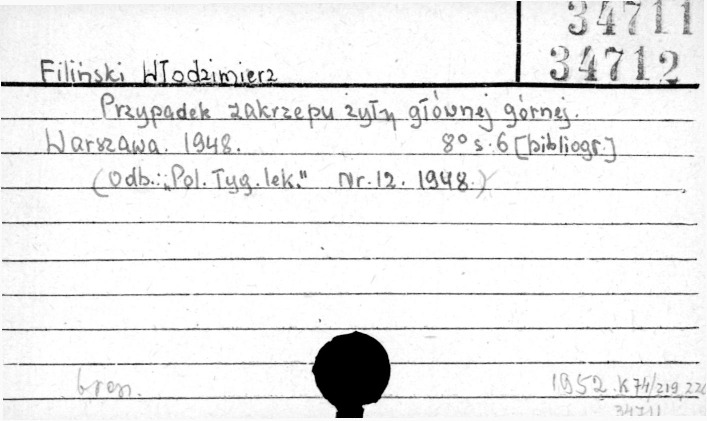 34711
34712
Filiński Włodzimierz
Przypadek zakrzepu żyły głównej górnej.
Warszawa. 1948. 8° s. 6 [bibliogr.]
(Odb.: „Pol. Tyg. lek." Nr. 12. 1948.)
bron. 1952. K 74/219, 220
34711